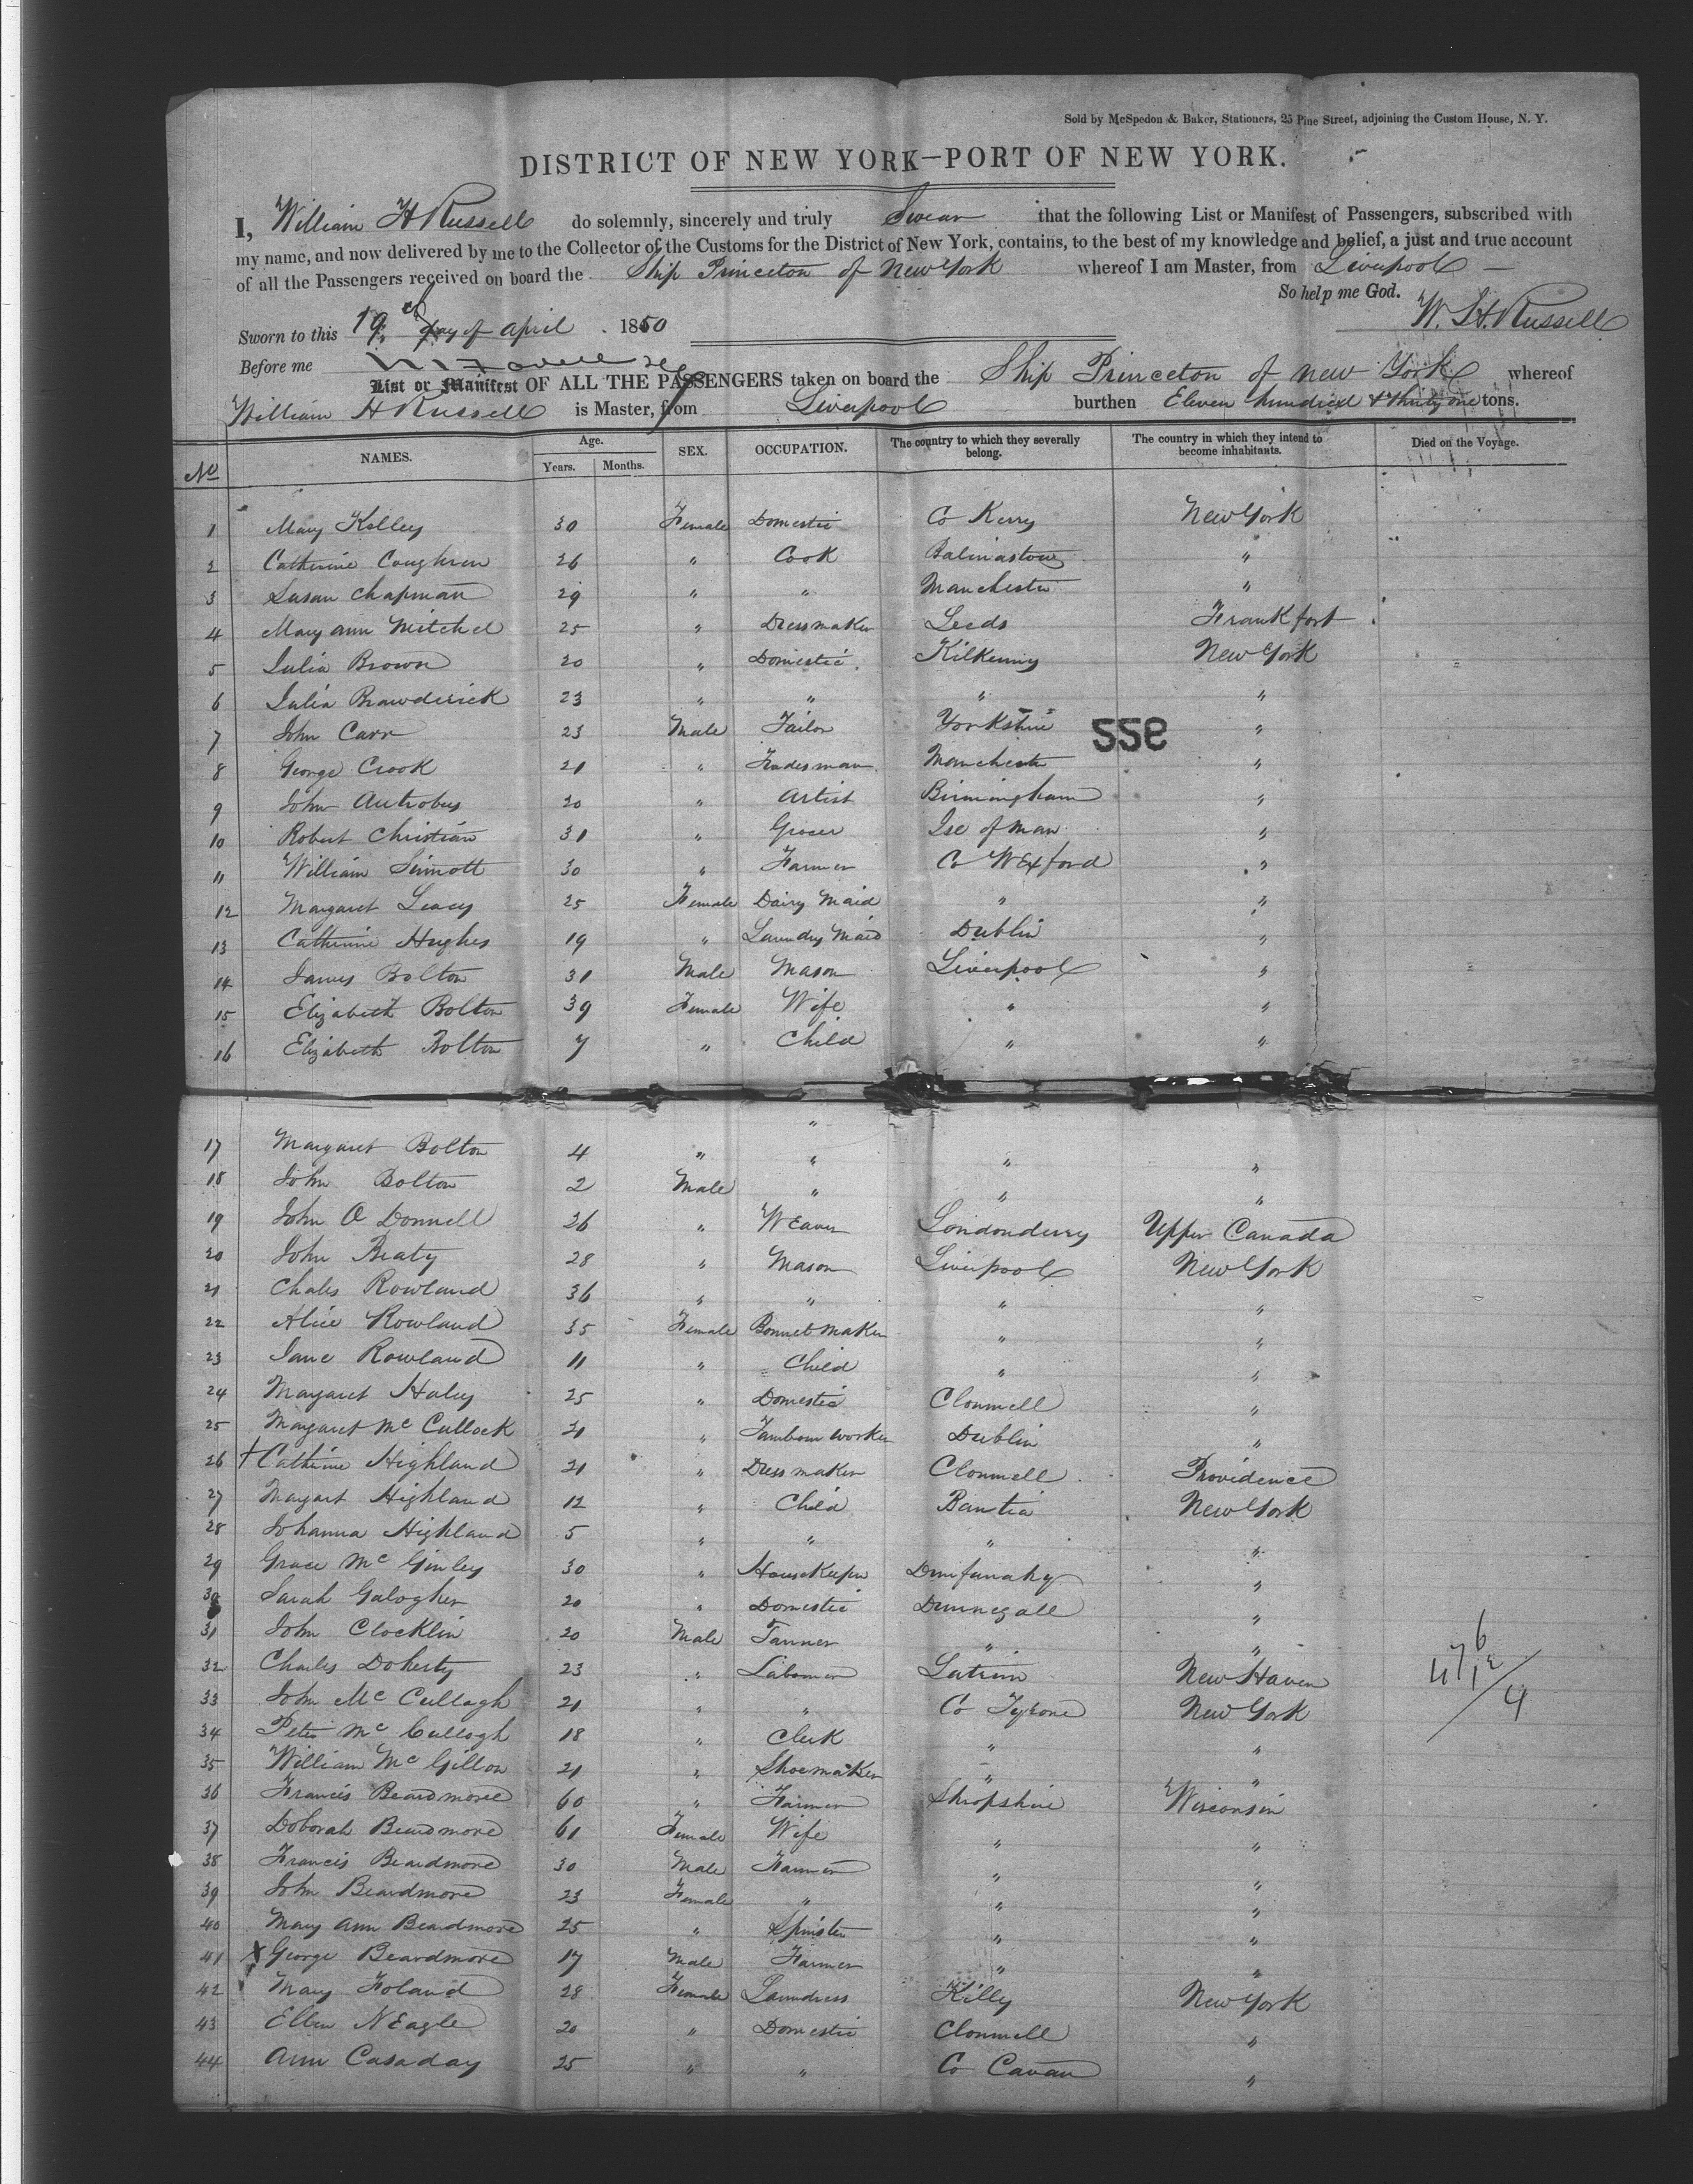 Sold by McSpedon & Baker, Stationers, 25 Pine Street, adjoining the Custom House, N. Y.
DISTRICT OF NEW YORK—PORT OF NEW YORK.
I, William H Russell do solemnly, sincerely and truly Swear that the following List or Manifest of Passengers, subscribed with
my name, and now delivered by me to the Collector of the Customs for the District of New York, contains, to the best of my knowledge and belief, a just and true account
of all the Passengers received on board the Ship Princeton of New York whereof I am Master, from Liverpool
So help me God.
W. H. Russell
Sworn to this 19 day of April 1850
Before me
List or Manifest OF ALL THE PASSENGERS taken on board the Ship Princeton of New York whereof
William H Russell is Master, from Liverpool burthen Eleven hundred & thirty one tons.
No NAMES. Age. Years. Months. SEX. OCCUPATION. The country to which they severally belong. The country in which they intend to become inhabitants. Died on the Voyage.
1 Mary Kelley 30 Female Domestic Co Kerry New York
2 Catherine Coughren 26 " Cook "
3 Susan Chapman 29 " " Manchester "
4 Mary ann Mitchel 25 " Dressmaker Leeds Frankfort
5 Julia Brown 20 " Domestic Kilkenny New York
6 Julia Browderick 23 " " " "
7 John Carr 23 Male Tailor Yorkshire "
8 George Crook 21 " Tradesman Manchester "
9 John Autrobus 20 " Artist Birmingham "
10 Robert Christian 31 " Grocer Ise of Man "
11 William Sinnott 30 " Farmer Co Wexford "
12 Margaret Leacy 25 Female Dairy Maid " "
13 Catherine Hughes 19 " Laundry Maid Dublin "
14 James Bolton 31 Male Mason Liverpool "
15 Elizabeth Bolton 39 Female Wife " "
16 Elizabeth Bolton 7 " Child " "
17 Margaret Bolton 4 " " " "
18 John Bolton 2 Male " " "
19 John O Donnell 26 " Weaver Londonderry Upper Canada
20 John Beaty 28 " Mason Liverpool New York
21 Chales Rowland 36 " " " "
22 Alice Rowland 35 Female Bonnet maker " "
23 Jane Rowland 11 " Child " "
24 Margaret Haley 25 " Domestic Clonmell "
25 Margaret Mc Cullock 21 " Tambour worker Dublin "
26 Catherine Highland 21 " Dress maker Clonmell Providence
27 Margart Highland 12 " Child New York
28 Johanna Highland 5 " " " "
29 Grace Mc Ginley 30 " HouseKeeper Dunfanahy "
30 Sarah Galogher 20 " Domestic Dunnegall "
31 John Clocklin 20 Male Tanner " "
32 Charles Doherty 23 " Labourer Latrim New Haven
33 John Mc Cullagh 21 " " Co Tyrone New York
34 Peter Mc Cullogh 18 " Clerk " "
35 William Mc Gillon 21 " Shoemaker " "
36 Francis Beardmore 60 " Farmer Shropshire Wisconsin
37 Doborah Beardmore 61 Female Wife " "
38 Francis Beardmore 30 Male Farmer " "
39 John Beardmore 23 Female " " "
40 Mary Ann Beardmore 25 " Spinster " "
41 George Beardmore 17 Male Farmer " "
42 Mary Foland 28 Female Laundress Killy New York
43 Ellen NEagle 20 " Domestic Clonmell "
44 Ann Casaday 25 " " Co Cavan "